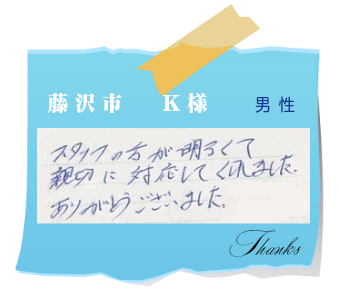 藤沢市 K様 男性
スタッフの方が明るくて
親切に対応してくれました.
ありがとうございました.
Thanks